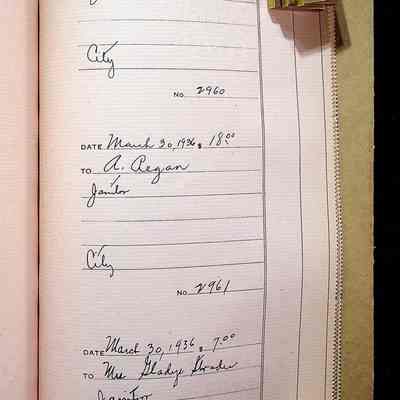 City
No. 2960
DATE March 30, 1936 $ 18.00
TO A. Regan
Janitor
City
No. 2961
DATE March 30, 1936 $ 7.00
TO Mrs Gladys
Janitor